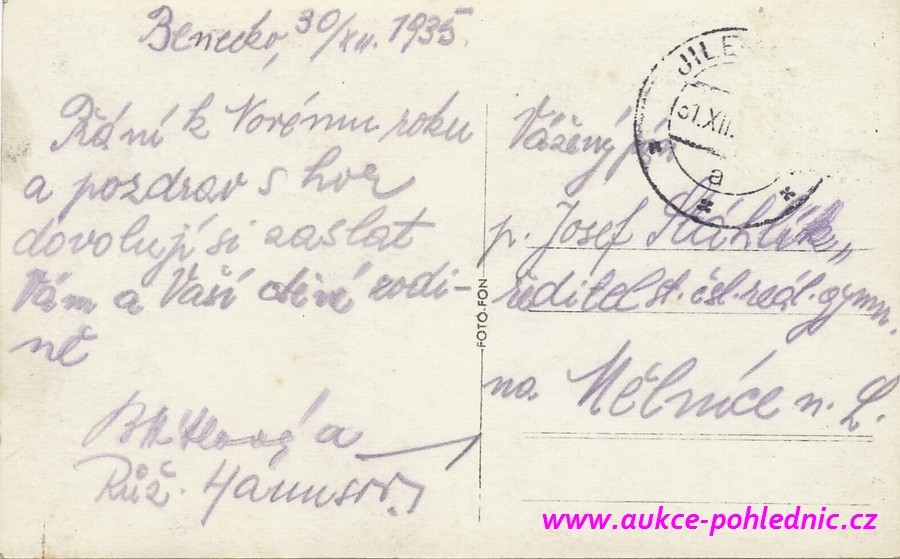 Benecko, 30/XII. 1935.
Přání k Novému roku
a pozdrav s hor
dovolují si zaslat
Vám a Vaší ctěné rodi-
ně
a
Růž.
FOTO-FON
JILE
31.XII.
a
Vážený pán
p. Josef
ředitel st. čsl. reál. gymn.
na Mělníce n. L.
www.aukce-pohlednic.cz